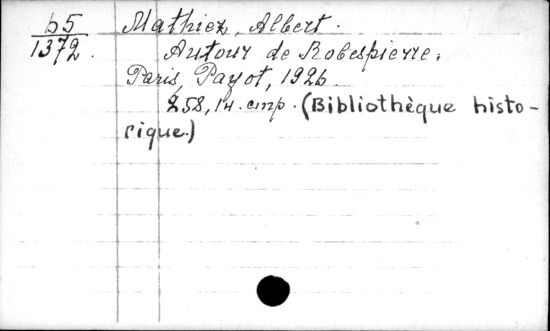 b5
1372.
Mathiez, Albert.
Autour de Robespierre.
Paris, Payot, 1926
258, 1 н. стр. (Bibliothèque histo-
rique.)